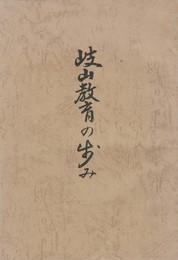 岐山教育の歩み